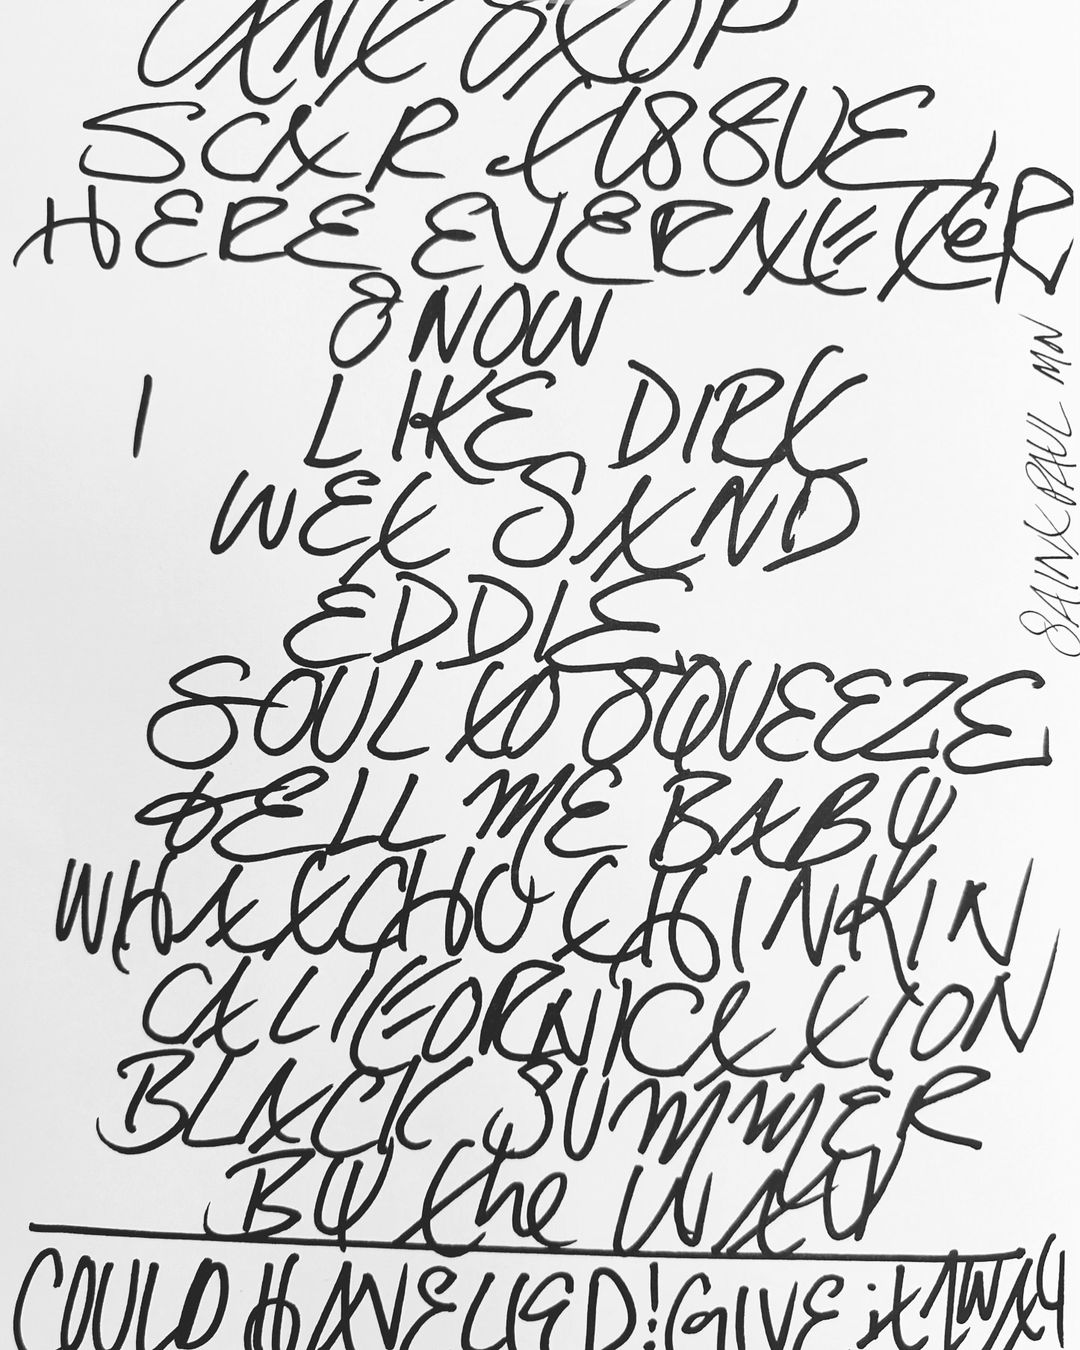 CANT STOP
SCAR TISSUE
HERE EVER AFTER
SNOW
I LIKE DIRT
WET SAND
EDDIE
SOUL TO SQUEEZE
TELL ME BABY
WHATCHU THINKIN
CALIFORNICATION
BLACK SUMMER
BY the WAY
COULD HAVE LIED! GIVE it AWAY
SAINT PAUL MN